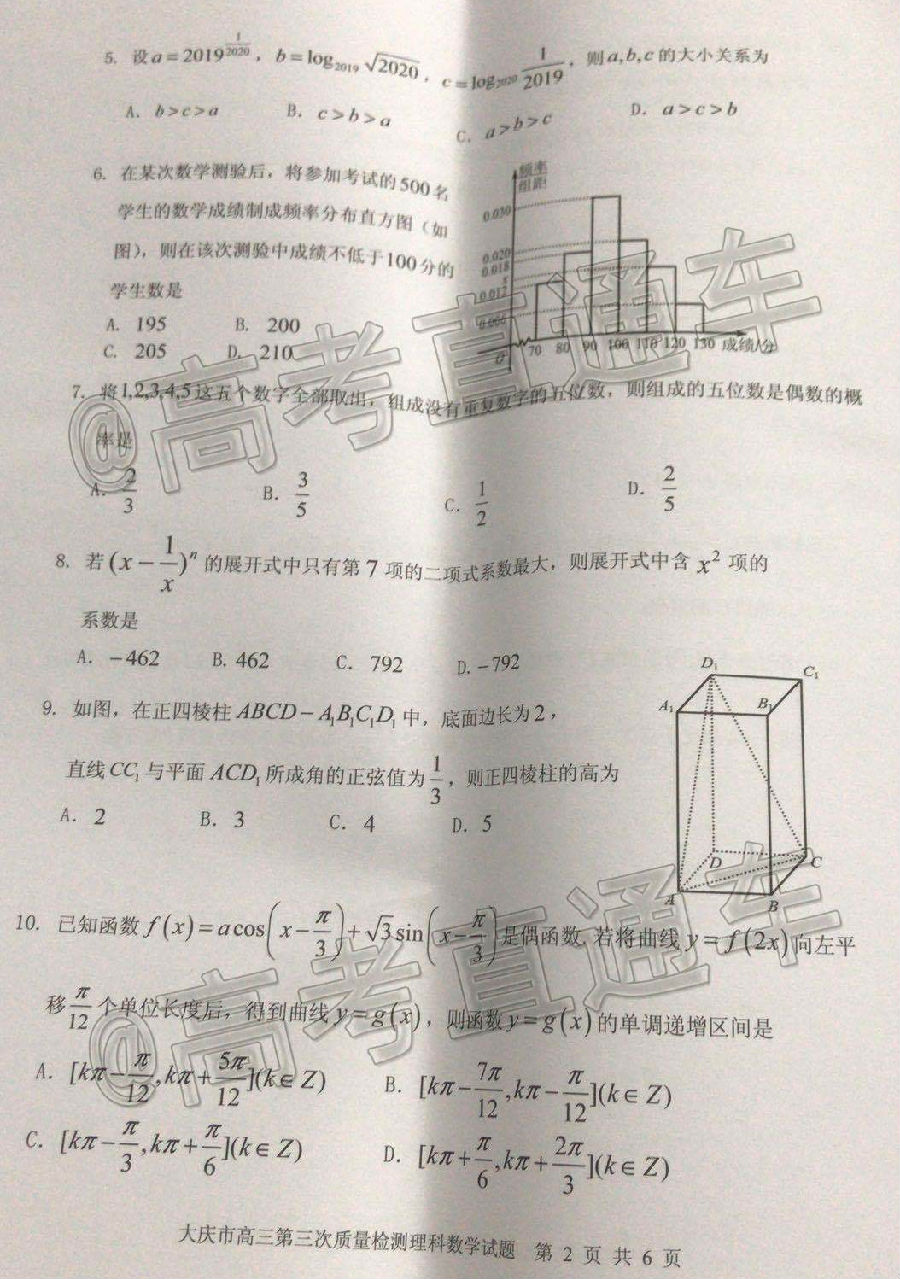 5. 设 a=2019^{\frac{1}{2020}}，b=log_{2019}\sqrt{2020}，c=log_{2020}\frac{1}{2019}，则a,b,c的大小关系为
A. b>c>a B. c>b>a C. a>b>c D. a>c>b
6. 在某次数学测验后，将参加考试的500名
学生的数学成绩制成频率分布直方图（如
图），则在该次测验中成绩不低于100分的
学生数是
A. 195 B. 200
C. 205 D. 210
频率
组距
0.030
0.020
0.018
x
0.012
0.006
O 70 80 90 100 110 120 130 成绩/分
7. 将1,2,3,4,5这五个数字全部取出，组成没有重复数字的五位数，则组成的五位数是偶数的概
率是
A. \frac{2}{3} B. \frac{3}{5} C. \frac{1}{2} D. \frac{2}{5}
8. 若(x-\frac{1}{x})^n的展开式中只有第7项的二项式系数最大，则展开式中含x^2项的
系数是
A. -462 B. 462 C. 792 D. -792
9. 如图，在正四棱柱ABCD-A_1B_1C_1D_1中，底面边长为2，
直线CC_1与平面ACD_1所成角的正弦值为\frac{1}{3}，则正四棱柱的高为
A. 2 B. 3 C. 4 D. 5
D_1 C_1
A_1 B_1
D C
A B
10. 已知函数f(x)=acos(x-\frac{π}{3})+\sqrt{3}sin(x-\frac{π}{3})是偶函数.若将曲线y=f(2x)向左平
移\frac{π}{12}个单位长度后，得到曲线y=g(x)，则函数y=g(x)的单调递增区间是
A. [kπ-\frac{π}{12},kπ+\frac{5π}{12}](k∈Z) B. [kπ-\frac{7π}{12},kπ-\frac{π}{12}](k∈Z)
C. [kπ-\frac{π}{3},kπ+\frac{π}{6}](k∈Z) D. [kπ+\frac{π}{6},kπ+\frac{2π}{3}](k∈Z)
大庆市高三第三次质量检测理科数学试题 第 2 页 共 6 页
@高考直通车
@高考直通车